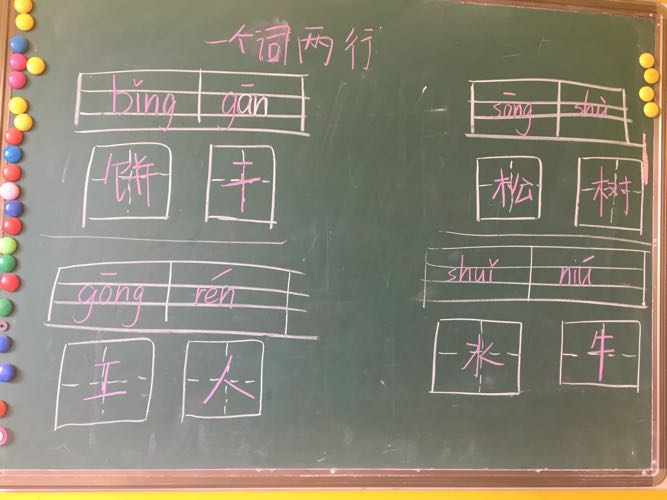 一个词两行
bǐng gān sōng shù
饼干 松树
gōng rén shuǐ niú
工人 水牛